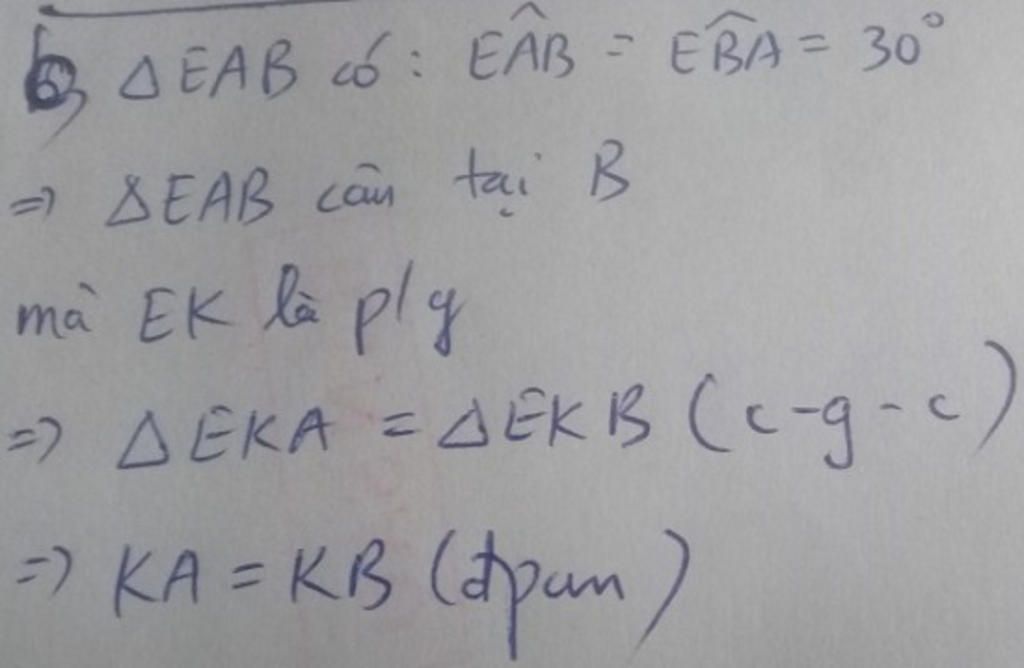 b, ΔEAB có: EÂB = EB̂A = 30°
=> ΔEAB cân tại B
mà EK là p/g
=> ΔEKA = ΔEKB (c-g-c)
=> KA = KB (đpcm)